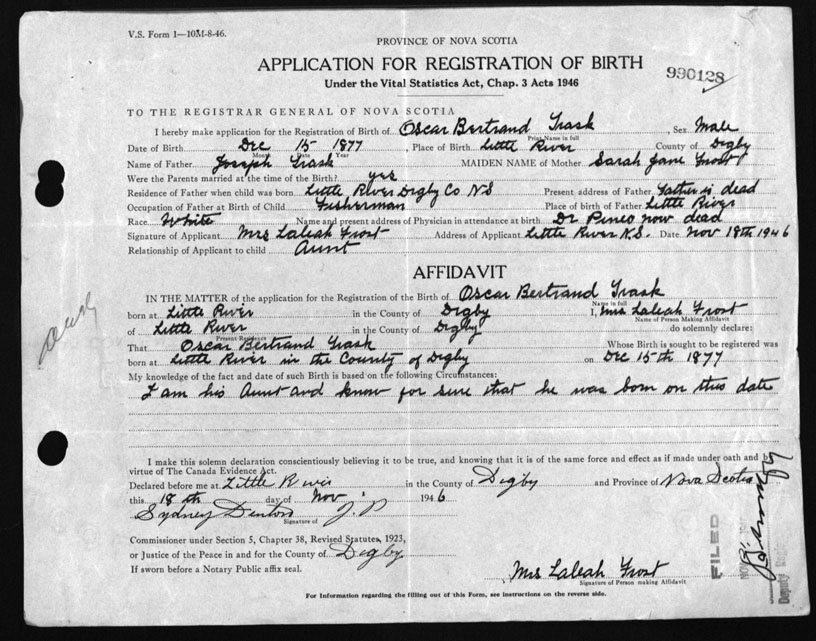 V.S. Form 1—10M-8-46.
PROVINCE OF NOVA SCOTIA
APPLICATION FOR REGISTRATION OF BIRTH
990128
Under the Vital Statistics Act, Chap. 3 Acts 1946
TO THE REGISTRAR GENERAL OF NOVA SCOTIA
I hereby make application for the Registration of Birth of Oscar Bertrand Trask, Sex Male
Print Name in full
Date of Birth Dec 15 1877, Place of Birth Little River County of Digby
Month Date Year
Name of Father Joseph Trask MAIDEN NAME of Mother Sarah Jane Frost
Were the Parents married at the time of the Birth? yes
Residence of Father when child was born Little River Digby Co N.S Present address of Father Father is dead
Occupation of Father at Birth of Child Fisherman Place of birth of Father Little River
Race White Name and present address of Physician in attendance at birth Dr Pineo now dead
Signature of Applicant Mrs Laleah Frost Address of Applicant Little River N.S. Date Nov 18th 1946
Relationship of Applicant to child Aunt
AFFIDAVIT
IN THE MATTER of the application for the Registration of the Birth of Oscar Bertrand Trask
Name in full
born at Little River in the County of Digby I, Mrs Laleah Frost
Name of Person Making Affidavit
of Little River in the County of Digby do solemnly declare:
Present Residence
That Oscar Bertrand Trask Whose Birth is sought to be registered was
born at Little River in the County of Digby on Dec 15th 1877
My knowledge of the fact and date of such Birth is based on the following Circumstances:
I am his Aunt and know for sure that he was born on this date
I make this solemn declaration conscientiously believing it to be true, and knowing that it is of the same force and effect as if made under oath and by
virtue of The Canada Evidence Act.
Declared before me at Little River in the County of Digby and Province of Nova Scotia
this 18th day of Nov 1946
Sydney Denton J.P
Signature of
Commissioner under Section 5, Chapter 38, Revised Statutes, 1923,
or Justice of the Peace in and for the County of Digby
If sworn before a Notary Public affix seal.
Mrs Laleah Frost
Signature of Person making Affidavit
For Information regarding the filling out of this Form, see instructions on the reverse side.
FILED
Deputy